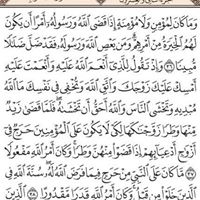 وَمَا كَانَ لِمُؤْمِنٍ وَلَا مُؤْمِنَةٍ إِذَا قَضَى ٱللَّهُ وَرَسُولُهُۥٓ أَمْرًا أَن يَكُونَ
لَهُمُ ٱلْخِيَرَةُ مِنْ أَمْرِهِمْ ۗ وَمَن يَعْصِ ٱللَّهَ وَرَسُولَهُۥ فَقَدْ ضَلَّ ضَلَٰلًا
مُّبِينًا ٣٦ وَإِذْ تَقُولُ لِلَّذِىٓ أَنْعَمَ ٱللَّهُ عَلَيْهِ وَأَنْعَمْتَ عَلَيْهِ
أَمْسِكْ عَلَيْكَ زَوْجَكَ وَٱتَّقِ ٱللَّهَ وَتُخْفِى فِى نَفْسِكَ مَا ٱللَّهُ
مُبْدِيهِ وَتَخْشَى ٱلنَّاسَ وَٱللَّهُ أَحَقُّ أَن تَخْشَىٰهُ ۖ فَلَمَّا قَضَىٰ زَيْدٌ
مِّنْهَا وَطَرًا زَوَّجْنَٰكَهَا لِكَىْ لَا يَكُونَ عَلَى ٱلْمُؤْمِنِينَ حَرَجٌ فِىٓ
أَزْوَٰجِ أَدْعِيَآئِهِمْ إِذَا قَضَوْا۟ مِنْهُنَّ وَطَرًا ۚ وَكَانَ أَمْرُ ٱللَّهِ مَفْعُولًا
٣٧ مَّا كَانَ عَلَى ٱلنَّبِىِّ مِنْ حَرَجٍ فِيمَا فَرَضَ ٱللَّهُ لَهُۥ ۖ سُنَّةَ ٱللَّهِ فِى
ٱلَّذِينَ خَلَوْا۟ مِن قَبْلُ ۚ وَكَانَ أَمْرُ ٱللَّهِ قَدَرًا مَّقْدُورًا ٣٨